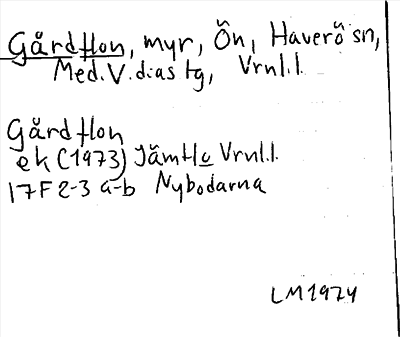 Gårdflon, myr, Ön, Haverö sn,
Med. V. dias tg, Vrnl.l.
Gårdflon
ek (1973) Jämtlo Vrnl.l.
17F 2-3 a-b Nybodarna
LM1974